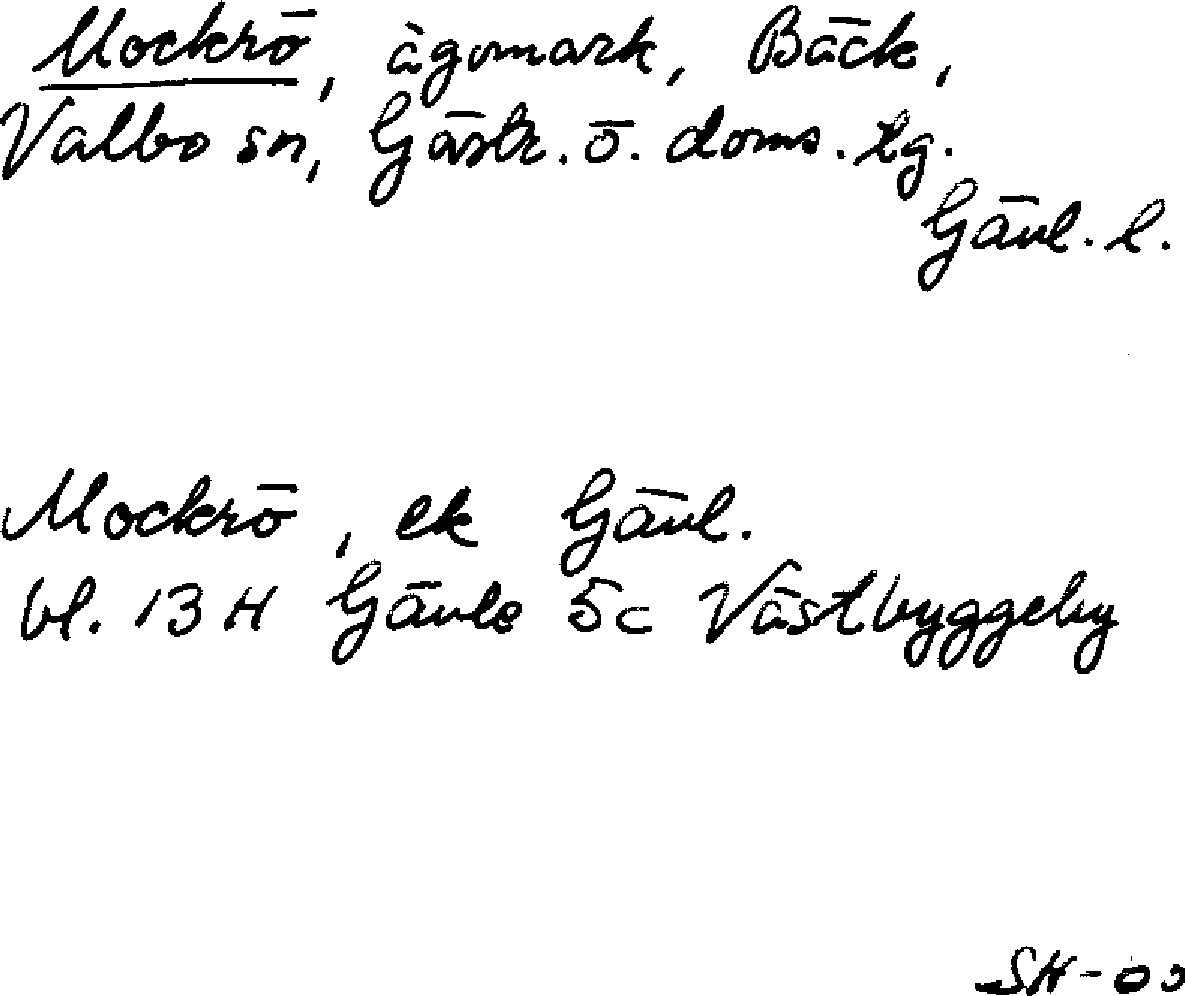 Mockrö, ägomark, Bäck,
Valbo sn, Gästr. ö. doms. tg.
Gävl. l.
Mockrö, ek Gävl.
bl. 13 H Gävle 5c Västbyggeby
SH-00